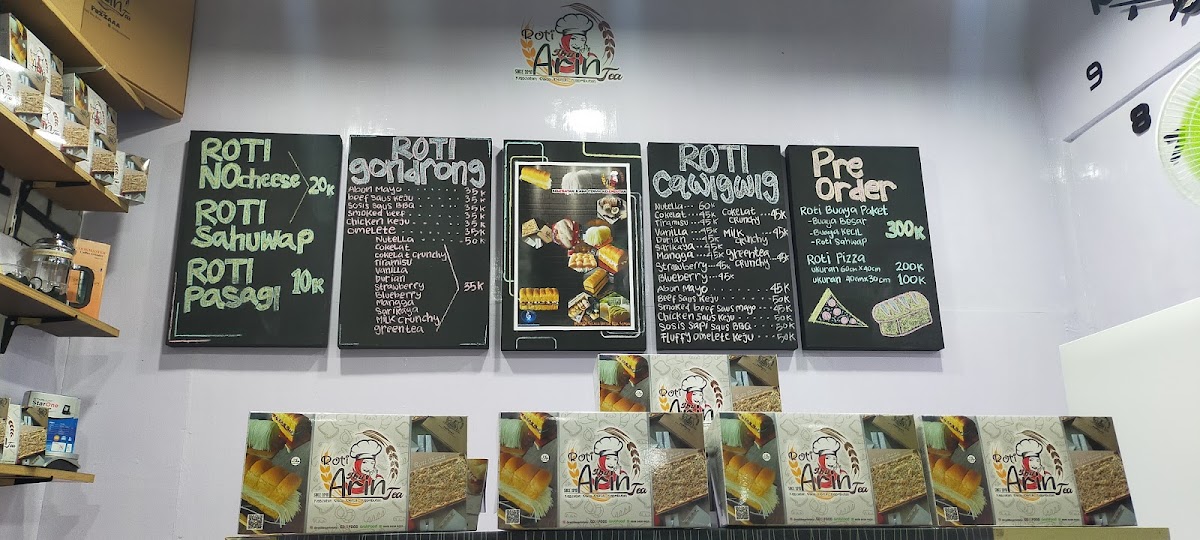 Roti
Ibu
Arin
Tea
SINCE 2016
ROTI
NO cheese
20K
ROTI
Sahuwap
ROTI
Pasagi
10K
ROTI
gondrong
Abon Mayo ........ 35K
beef saus keju ..... 35K
Sosis Saus BBQ ..... 35K
Smoked beef ..... 35K
Chicken Keju ..... 35K
Omelete ..... 35K
Nutella ..... 50K
Cokelat
Cokelat Crunchy
Tiramisu
Vanilla
Durian
Strawberry
Blueberry
Mangga
Sarikaya
Milk Crunchy
greentea
35K
ROTI
Cawigwig
Nutella --- 60K
Cokelat --- 45K
Tiramisu --- 45K
Vanilla --- 45K
Durian --- 45K
Sarikaya --- 45K
Mangga --- 45K
Strawberry --- 45K
Blueberry --- 45K
Cokelat Crunchy 45K
Milk Crunchy 45K
greentea Crunchy 45K
Abon Mayo ..... 45K
Beef Saus Keju ..... 50K
Smoked beef Saus mayo .. 45K
Chicken Saus Keju ..... 50K
Sosis Sapi Saus BBQ .... 50K
Fluffy Omelete Keju ... 50K
Pre
Order
Roti Buaya Paket
- Buaya Besar
- Buaya Kecil
- Roti Sahuwap
300K
Roti Pizza
ukuran 60cm x 40cm 200K
ukuran 40cm x 30cm 100K
9
8
StarOne
Roti
Ibu
Arin
Tea
Roti
Ibu
Arin
Tea
Roti
Ibu
Arin
Tea
Roti
Ibu
Arin
Tea